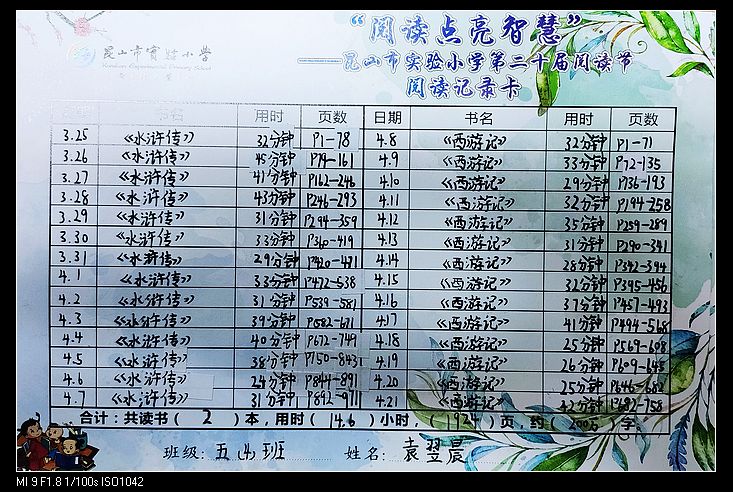 “阅读点亮智慧”
昆山市实验小学
——昆山市实验小学第二十届阅读节
阅读记录卡
书名 用时 页数 日期 书名 用时 页数
3.25 《水浒传》 32分钟 P1-78 4.8 《西游记》 32分钟 P1-71
3.26 《水浒传》 45分钟 P79-161 4.9 《西游记》 33分钟 P72-135
3.27 《水浒传》 41分钟 P162-246 4.10 《西游记》 29分钟 P136-193
3.28 《水浒传》 43分钟 P246-293 4.11 《西游记》 32分钟 P194-258
3.29 《水浒传》 31分钟 P294-359 4.12 《西游记》 35分钟 P259-289
3.30 《水浒传》 33分钟 P360-419 4.13 《西游记》 31分钟 P290-341
3.31 《水浒传》 29分钟 P420-471 4.14 《西游记》 28分钟 P342-394
4.1 《水浒传》 33分钟 P472-538 4.15 《西游记》 32分钟 P395-456
4.2 《水浒传》 31分钟 P539-581 4.16 《西游记》 37分钟 P457-493
4.3 《水浒传》 39分钟 P582-671 4.17 《西游记》 41分钟 P494-568
4.4 《水浒传》 40分钟 P672-749 4.18 《西游记》 25分钟 P569-608
4.5 《水浒传》 38分钟 P750-843 4.19 《西游记》 26分钟 P609-645
4.6 《水浒传》 24分钟 P844-891 4.20 《西游记》 25分钟 P646-682
4.7 《水浒传》 31分钟 P892-971 4.21 《西游记》 42分钟 P682-758
合计：共读书（ 2 ）本，用时（ 14.6 ）小时，（ 1924 ）页，约（ ）字
班级：五（4）班 姓名：袁翌晨
MI 9 F1.8 1/100s ISO1042